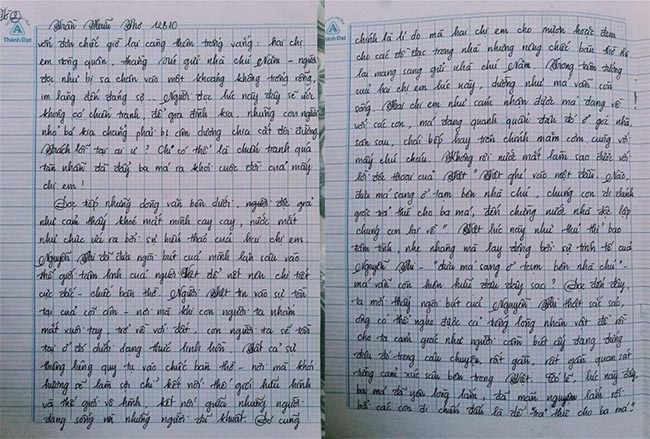 Tờ 2
Trần Hữu Thơ 12B10
Thành Đạt
vốn đơn chiếc giờ lại càng thêm trống vắng: hai chị
em tòng quân, thằng Út gửi nhà chú Năm - người
đọc như bị sa chân vào một khoảng không trống rỗng,
im lặng đến đáng sợ... Người đọc lúc này đây sẽ ước
không có chiến tranh, để gia đình kia, những con người
nhỏ bé kia chẳng phải bị con đường chia cắt đôi đường.
Trách lỗi tại ai ư? Chỉ có thể là chiến tranh quá
tàn nhẫn đã đẩy ba má ra khỏi cuộc đời của mấy
chị em!
Đọc tiếp những dòng văn bên dưới, người đọc
như cảm thấy khoé mắt mình cay cay, nước mắt
như chực ứa ra bởi sự hiếu thảo của hai chị em.
Nguyễn Thi đã đưa ngòi bút của mình lấn sâu vào
thế giới tâm linh của người Việt để viết nên chi tiết
cực đắt - chiếc bàn thờ. Người Việt tin vào sự tồn
tại của cõi âm - nơi mà khi con người ta nhắm
mắt xuôi tay, trở về với đất, con người ta sẽ tồn
tại ở đó dưới dạng thức linh hồn. Tất cả sự
thiêng liêng quy tụ vào chiếc bàn thờ - nơi mà khói
hương sẽ làm sợi chỉ kết nối thế giới hữu hình
và thế giới vô hình, kết nối giữa những người
đang sống và những người đã khuất. Đó cũng
chính là lí do mà hai chị em cho mượn hoặc đem
cho các đồ đạc trong nhà nhưng riêng chiếc bàn thờ thì
lại mang sang gửi nhà chú Năm. Trong tâm tưởng
của hai chị em lúc này, dường như má vẫn còn
sống. Hai chị em như cảm nhận được má đang về
với các con, má đang quanh quẩn đâu đó ở góc nhà,
sân sau, chái bếp hay trên chính mâm cơm cúng với
mấy chú cháu. Không rơi nước mắt làm sao được với
lời đối thoại của Việt "Việt ghé vào một đầu. Nào,
đưa má sang ở tạm bên nhà chú, chúng con đi đánh
giặc trả thù cho ba má, đến chừng nước nhà độc lập
chúng con lại về". Việt lúc này như thủ thỉ bao
tâm tình, nhẹ nhàng mà lay động bởi sự tinh tế của
Nguyễn Thi - "đưa má sang ở tạm bên nhà chú" -
má vẫn còn hiện hữu đâu đây sao? Đọc đến đây,
ta mới thấy ngòi bút của Nguyễn Thi thật sắc sảo,
ông có thể nghe được cả tiếng lòng nhân vật để rồi
cho ta cảm giác như người cầm bút ấy đang đứng
đâu đó trong câu chuyện, rất gần, rất gần quan sát
từng cảm xúc sâu bên trong Việt. Có lẽ, lúc này đây,
ba má đã yên lòng lắm, đã mãn nguyện lắm rồi
bởi các con đi chiến đấu là để "trả thù cho ba má".